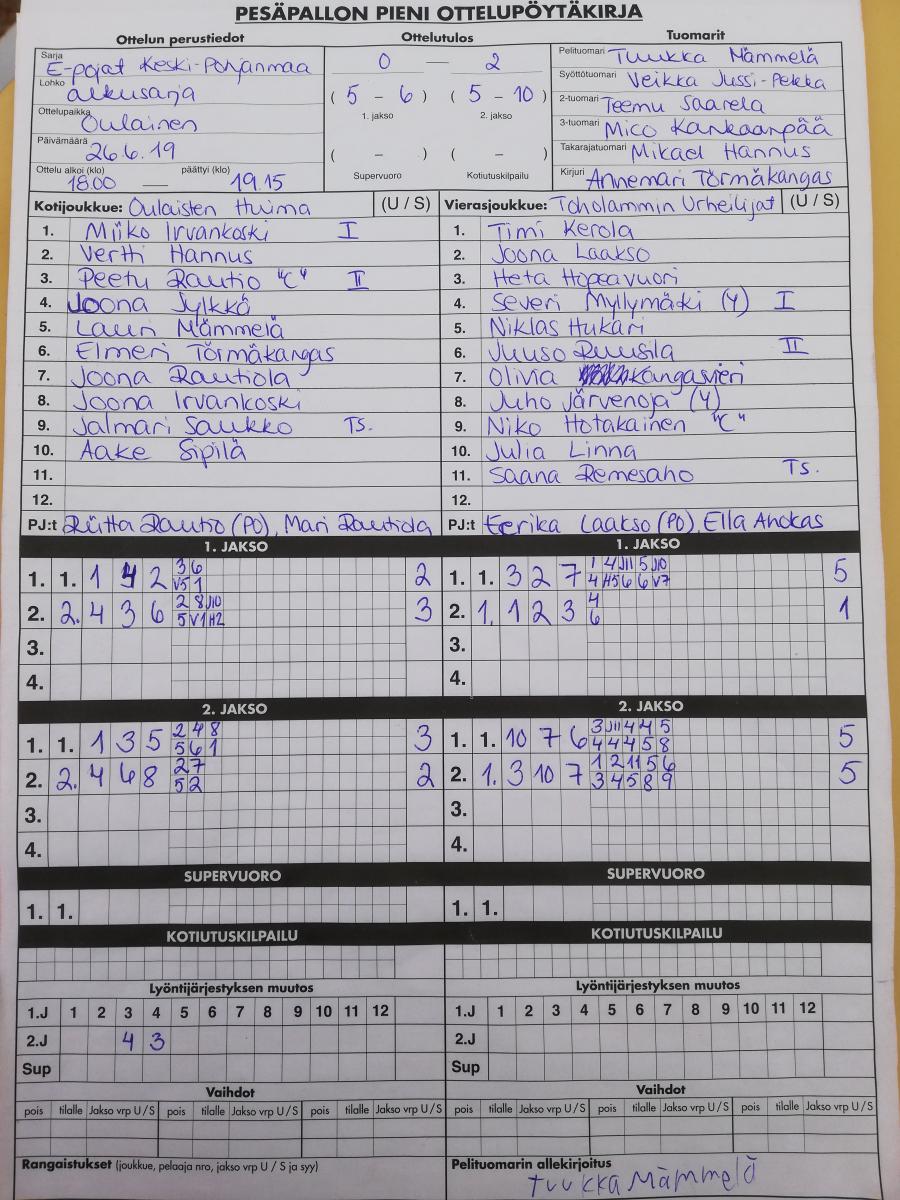 PESÄPALLON PIENI OTTELUPÖYTÄKIRJA
Ottelun perustiedot Ottelutulos Tuomarit
Sarja E-pojat Keski-Pohjanmaa
Lohko alkusarja
Ottelupaikka Oulainen
Päivämäärä 26.6.19
Ottelu alkoi (klo) päättyi (klo)
18.00 — 19.15
0 — 2
( 5 - 6 ) ( 5 - 10 )
1. jakso 2. jakso
( - ) ( - )
Supervuoro Kotiutuskilpailu
Pelituomari Tuukka Mämmelä
Syöttötuomari Veikka Jussi-Pekka
2-tuomari Teemu Saarela
3-tuomari Mico Kankaanpää
Takarajatuomari Mikael Hannus
Kirjuri Annemari Törmäkangas
Kotijoukkue: Oulaisten Huima (U / S)
1. Miiko Irvankoski I
2. Vertti Hannus
3. Peetu Rautio "C" II
4. Joona Jylkkä
5. Lauri Mämmelä
6. Elmeri Törmäkangas
7. Joona Rautiola
8. Joona Irvankoski
9. Jalmari Saukko Ts.
10. Aake Sipilä
11.
12.
PJ:t Riitta Rautio (PO), Mari Rautiola
Vierasjoukkue: Toholammin Urheilijat (U / S)
1. Timi Kerola
2. Joona Laakso
3. Heta Hopeavuori
4. Severi Myllymäki (Y) I
5. Niklas Hukari
6. Juuso Ruusila II
7. Olivia Kangasvieri
8. Juho Järvenoja (Y)
9. Niko Hotakainen "C"
10. Julia Linna
11. Saana Remesaho Ts.
12.
PJ:t Eerika Laakso (PO), Ella Ahokas
1. JAKSO 1. JAKSO
3 6
1. 1. 1 4 2 V5 1 2
2 8 J10
2. 2. 4 3 6 5 V1 H2 3
3.
4.
1 4 J11 5 J10
1. 1. 3 2 7 4 H5 6 6 V7 5
4
2. 1. 1 2 3 6 1
3.
4.
2. JAKSO 2. JAKSO
2 4 8
1. 1. 1 3 5 5 6 1 3
2 7
2. 2. 4 6 8 5 2 2
3.
4.
3 J11 4 4 5
1. 1. 10 7 6 4 4 4 5 8 5
1 2 11 5 6
2. 1. 3 10 7 3 4 5 8 9 5
3.
4.
SUPERVUORO SUPERVUORO
1. 1. 1. 1.
KOTIUTUSKILPAILU KOTIUTUSKILPAILU
Lyöntijärjestyksen muutos Lyöntijärjestyksen muutos
1.J 1 2 3 4 5 6 7 8 9 10 11 12 1.J 1 2 3 4 5 6 7 8 9 10 11 12
2.J 4 3 2.J
Sup Sup
Vaihdot Vaihdot
pois tilalle Jakso vrp U / S pois tilalle Jakso vrp U / S pois tilalle Jakso vrp U / S pois tilalle Jakso vrp U / S pois tilalle Jakso vrp U / S pois tilalle Jakso vrp U / S
Rangaistukset (joukkue, pelaaja nro, jakso vrp U / S ja syy) Pelituomarin allekirjoitus
Tuukka Mämmelä